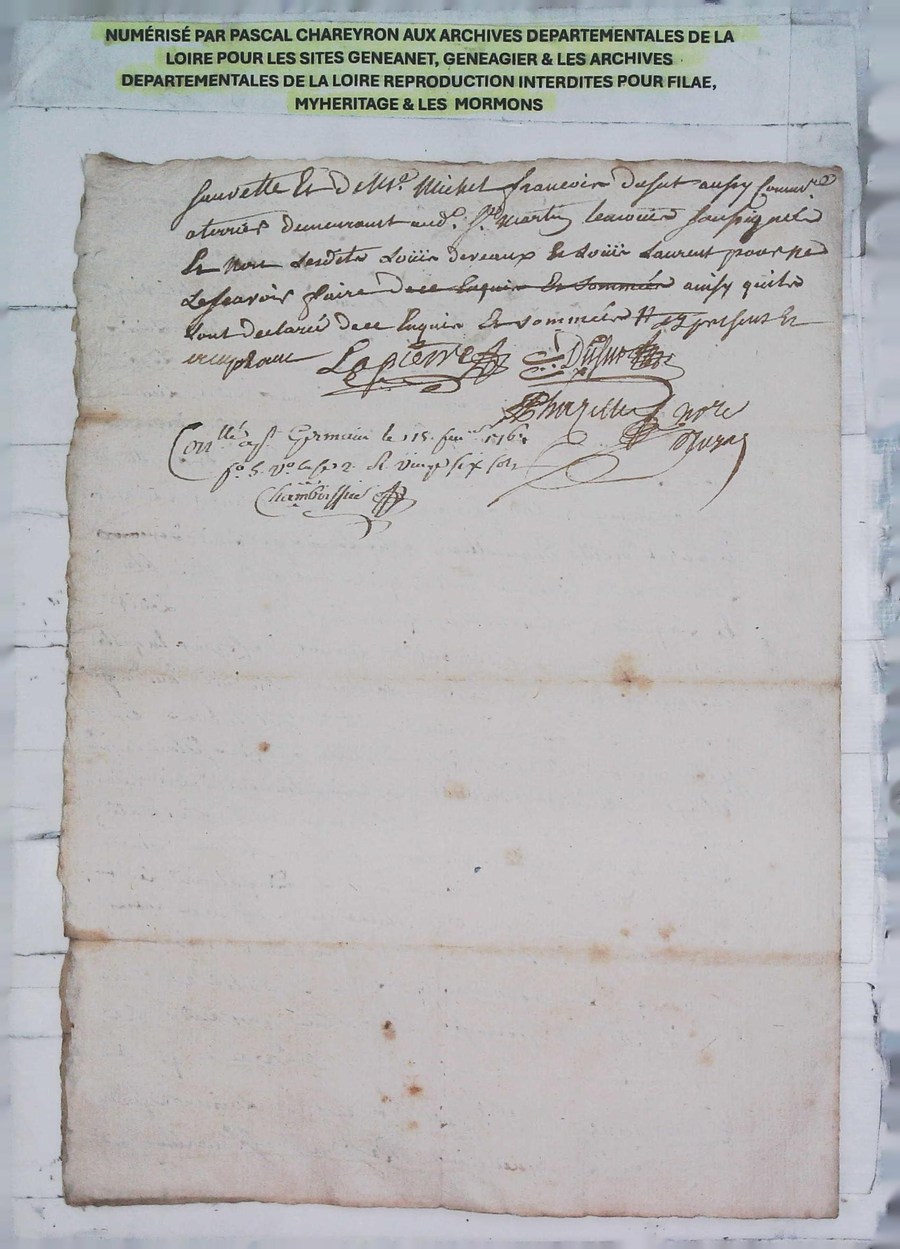 NUMÉRISÉ PAR PASCAL CHAREYRON AUX ARCHIVES DEPARTEMENTALES DE LA
LOIRE POUR LES SITES GENEANET, GENEAGIER & LES ARCHIVES
DEPARTEMENTALES DE LA LOIRE REPRODUCTION INTERDITES POUR FILAE,
MYHERITAGE & LES MORMONS
Sauvette Et De Mre. Michel francois dufut aussy Commre
aterrier demeurant aud. St. martin
Et non Lesdits Loüis deveaux Et Loüis Laurent pour ne
Lescavoir faire dece Enquis Et Sommés ainsy quils
Sont declaré dece Enquis Et sommés present Et
Lapierre
nore
Conllé a St Germain le 15. 176
fo. 5. vo. Ce 2. R vingt six sols